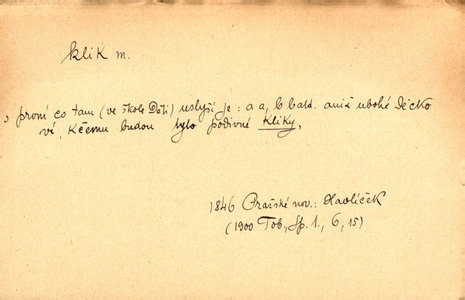 klik m.
první co tam (ve škole Děti) uslyší je: a a, b batd. aniž ubohé Děcko
ví, K čemu budou tyto podivné kliky,
1846 Pražské nov.: Havlíček
(1900 Tob., Sp. 1, 6, 15)